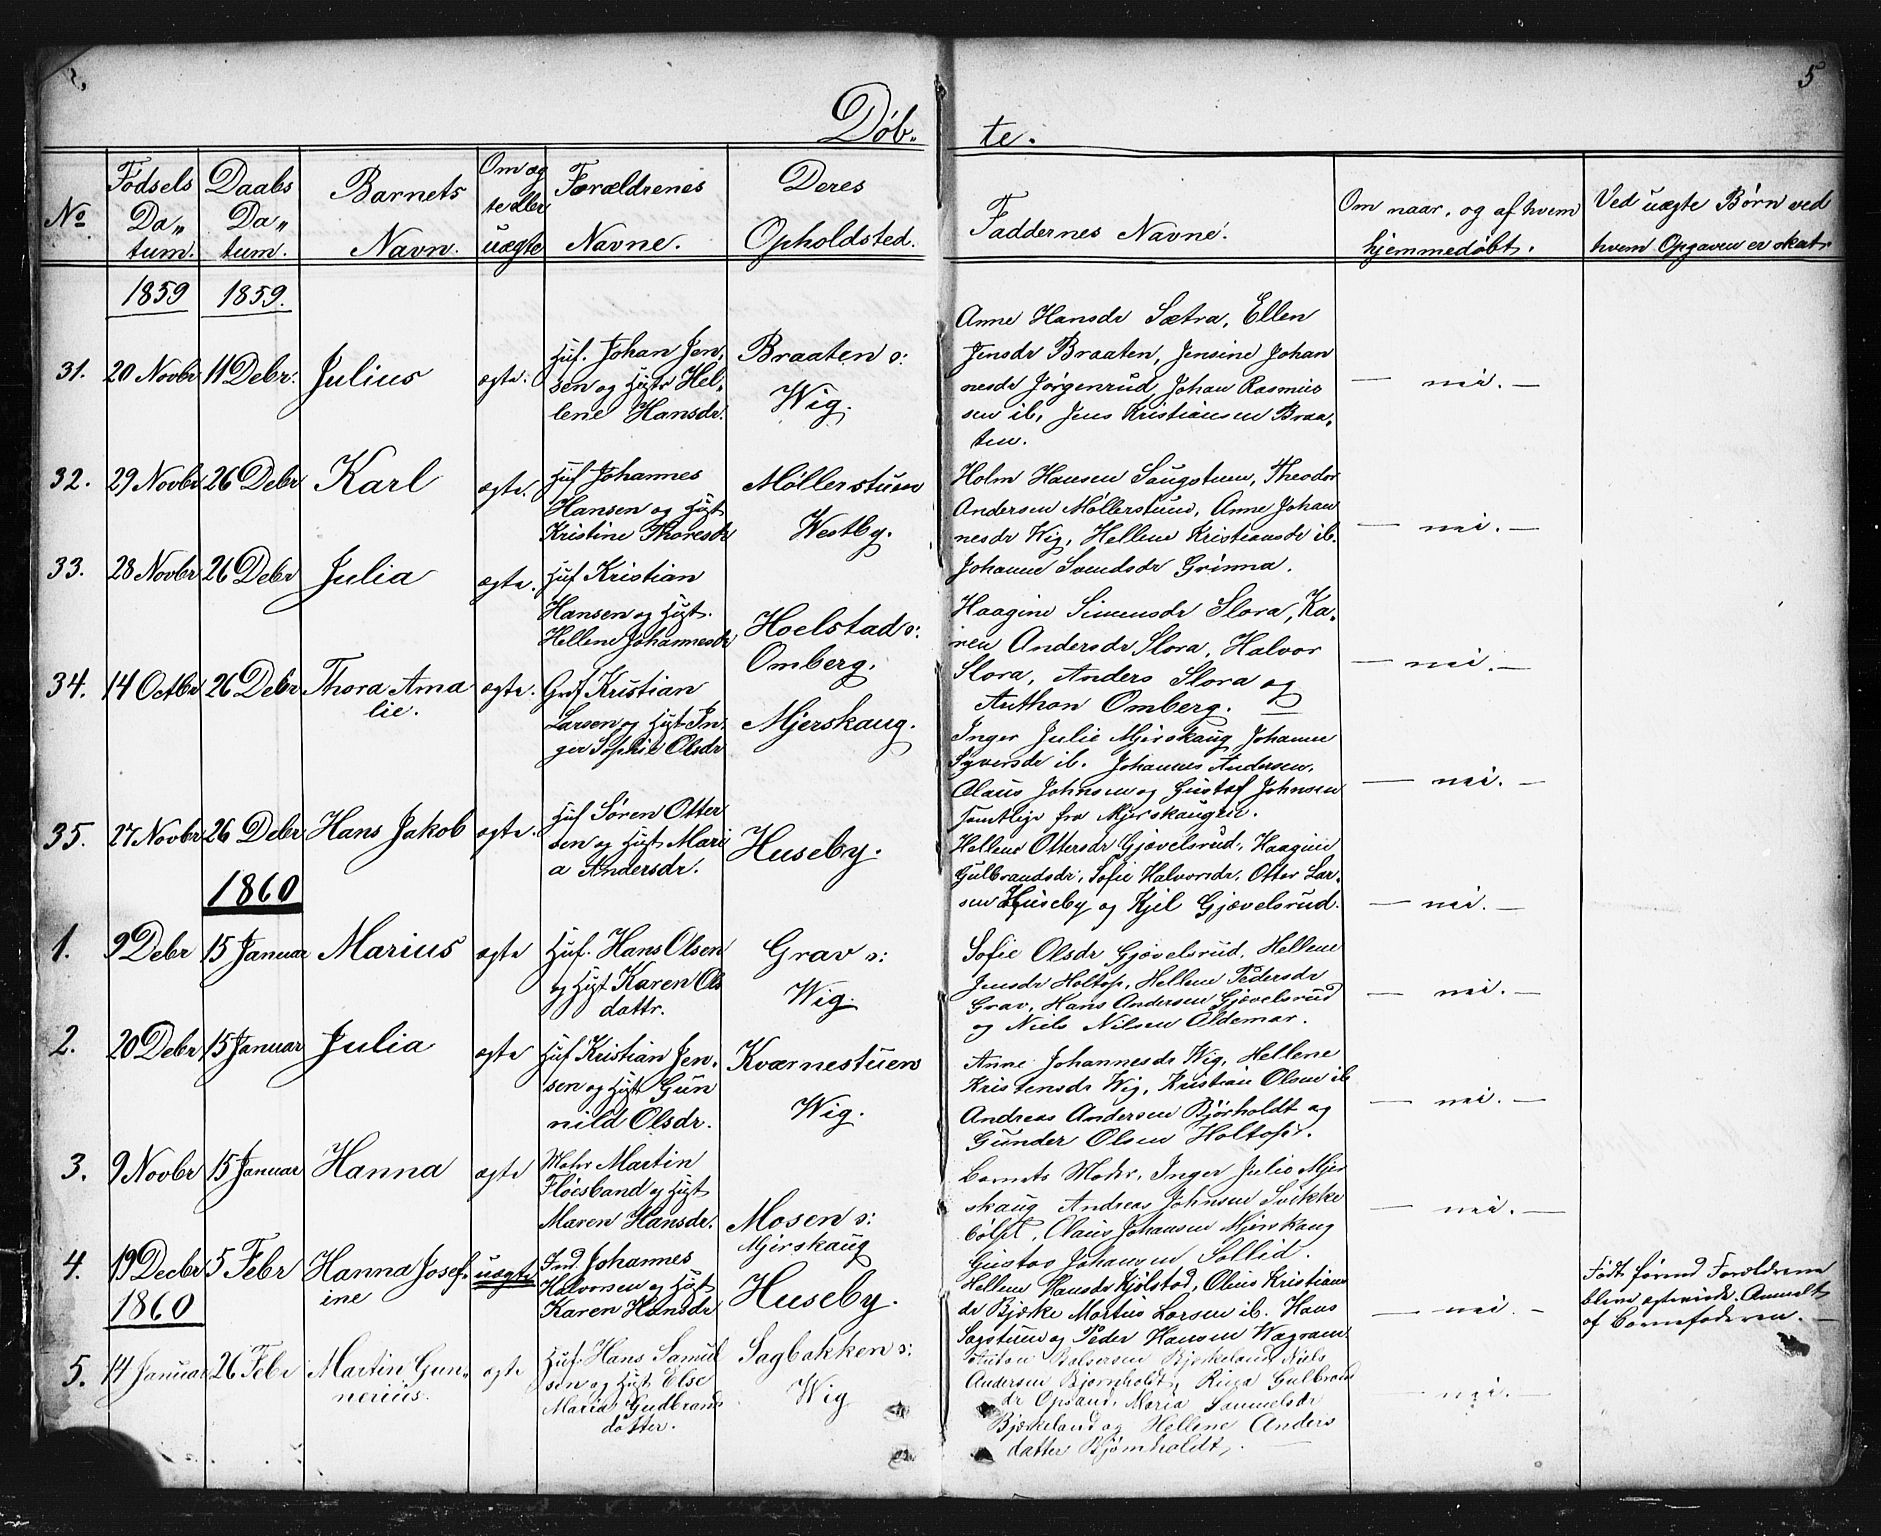 5
Døb-
te.
No
Fødsels Da„ tum.
Daabs Da„ tum.
Barnets Navn.
Om æg te eller uægte
Forældrenes Navne.
Deres Opholdsted.
Faddernes Navne.
Om naar, og af hvem hjemmedøbt.
Ved uægte Børn ved hvem Opgaven er skat.
1859 1859.
31. 20 Novbr 11 Debr. Julius ægte.
Huf. Johan Jen„
sen og Hustr Hel„
lene Hansdr.
Braaten s:
Wig.
Anne Hansdr Sætra, Ellen
Jensdr Braaten, Jensine Johan
nesdr Jørgenrud, Johan Rasmus
sen ib, Jens Kristiansen Braa„
ten.
— nei. —
32. 29 Novbr 26 Debr Karl ægte.
Huf Johannes
Hansen og Hust
Kristine Thoresdr
Møllerstuen
Westby.
Holm Hansen Saugstuen, Theodor
Andersen Møllerstuen, Anne Johan
nesdr Wig, Hellene Kristiansdr ib.
Johanne Svendsdr Grinna.
— nei. —
33. 28 Novbr 26 Debr Julia ægte.
Huf Kristian
Hansen og Hust.
Hellene Johannesdr
Hoelstad s:
Omberg.
Haagine Simensdr Slora, Ka„
ren Andersdr Slora, Halvor
Slora, Anders Slora og
Anthon Omberg. —
— nei. —
34. 14 Octbr 26 Debr Thora Ama
lie. ægte.
Kristian
Larsen og Hust In„
ger Sophie Olsdr
Mjerskaug.
Inger Julie Mjerskaug Johanne
Syversdr ib. Johannes Andersen,
Olaus Johnsen og Gustaf Johnsen
Samtlige fra Mjerskaugen.
— nei. —
35. 27 Novbr 26 Debr Hans Jakob ægte.
Huf Søren Otter
sen og Hust Mari
a Andersdr.
Huseby.
Hellene Ottersdr Gjævelsrud, Haagine
Gulbrandsdr, Sofie Halvorsdr. Otter Lar„
sen Huseby og Kjel Gjævelsrud.
— nei. —
1860
1. 9 Debr 15 Januar Marius ægte
Huf. Hans Olsen
og Hust Karen Ols
dattr.
Grav s:
Wig.
Sofie Olsdr Gjøvelsrud, Hellene
Jensdr Holtop, Hellene Pedersdr
Grav, Hans Andersen Gjævelsrud
og Niels Nilsen Oldemar.
— nei. —
2. 20 Debr 15 Januar Julia ægte
Huf Kristian Jen„
sen og Hust Gun
nild Olsdr.
Kværnestuen
Wig.
Anne Johannesdr Wig, Hellene
Kristensdr Wig, Kristian Olsen ib
Andreas Andersen Bjørholdt og
Gunder Olsen Holtopr.
— nei. —
3. 9 Novbr 15 Januar Hanna ægte
Martin
Fløesband og Hust
Maren Hansdr.
Mosen s:
Mjerskaug
Barnets Moder, Inger Julie Mjer
skaug Andreas Johnsen Svikke
bølpt, Olaus Johansen Mjerskaug
Gustav Johansen Sollid.
— nei. —
4. 19 Decbr 5 Febr Hanna Josef„
ine uægte
Ind. Johannes
Halvorsen og Hust
Karen Hansdr
Huseby.
Hellene Hansdr Kjølstad, Oline Kristians
dr Bjerke Martius Larsen ib. Hans
Sagstuen og Peder Hansen Wagram
— nei. —
Født førend Forældrene
bleve egteviede. Anmeldt
af Barnefaderen. —
1860
5. 14 Januar 26 Febr Martin Gun„
nerius. ægte
Huf. Hans Samuel
sen og Hust Else
Maria Gudbrands
datter.
Sagbakken s:
Wig
Anton Balsersen Bjerkeland, Niels
Andersen Bjørnholdt, Gulbrands
dr Opsand, Maria Samuelsdr
Bjerkeland og Hellene Anders
datter Bjørnholdt,
— nei. —